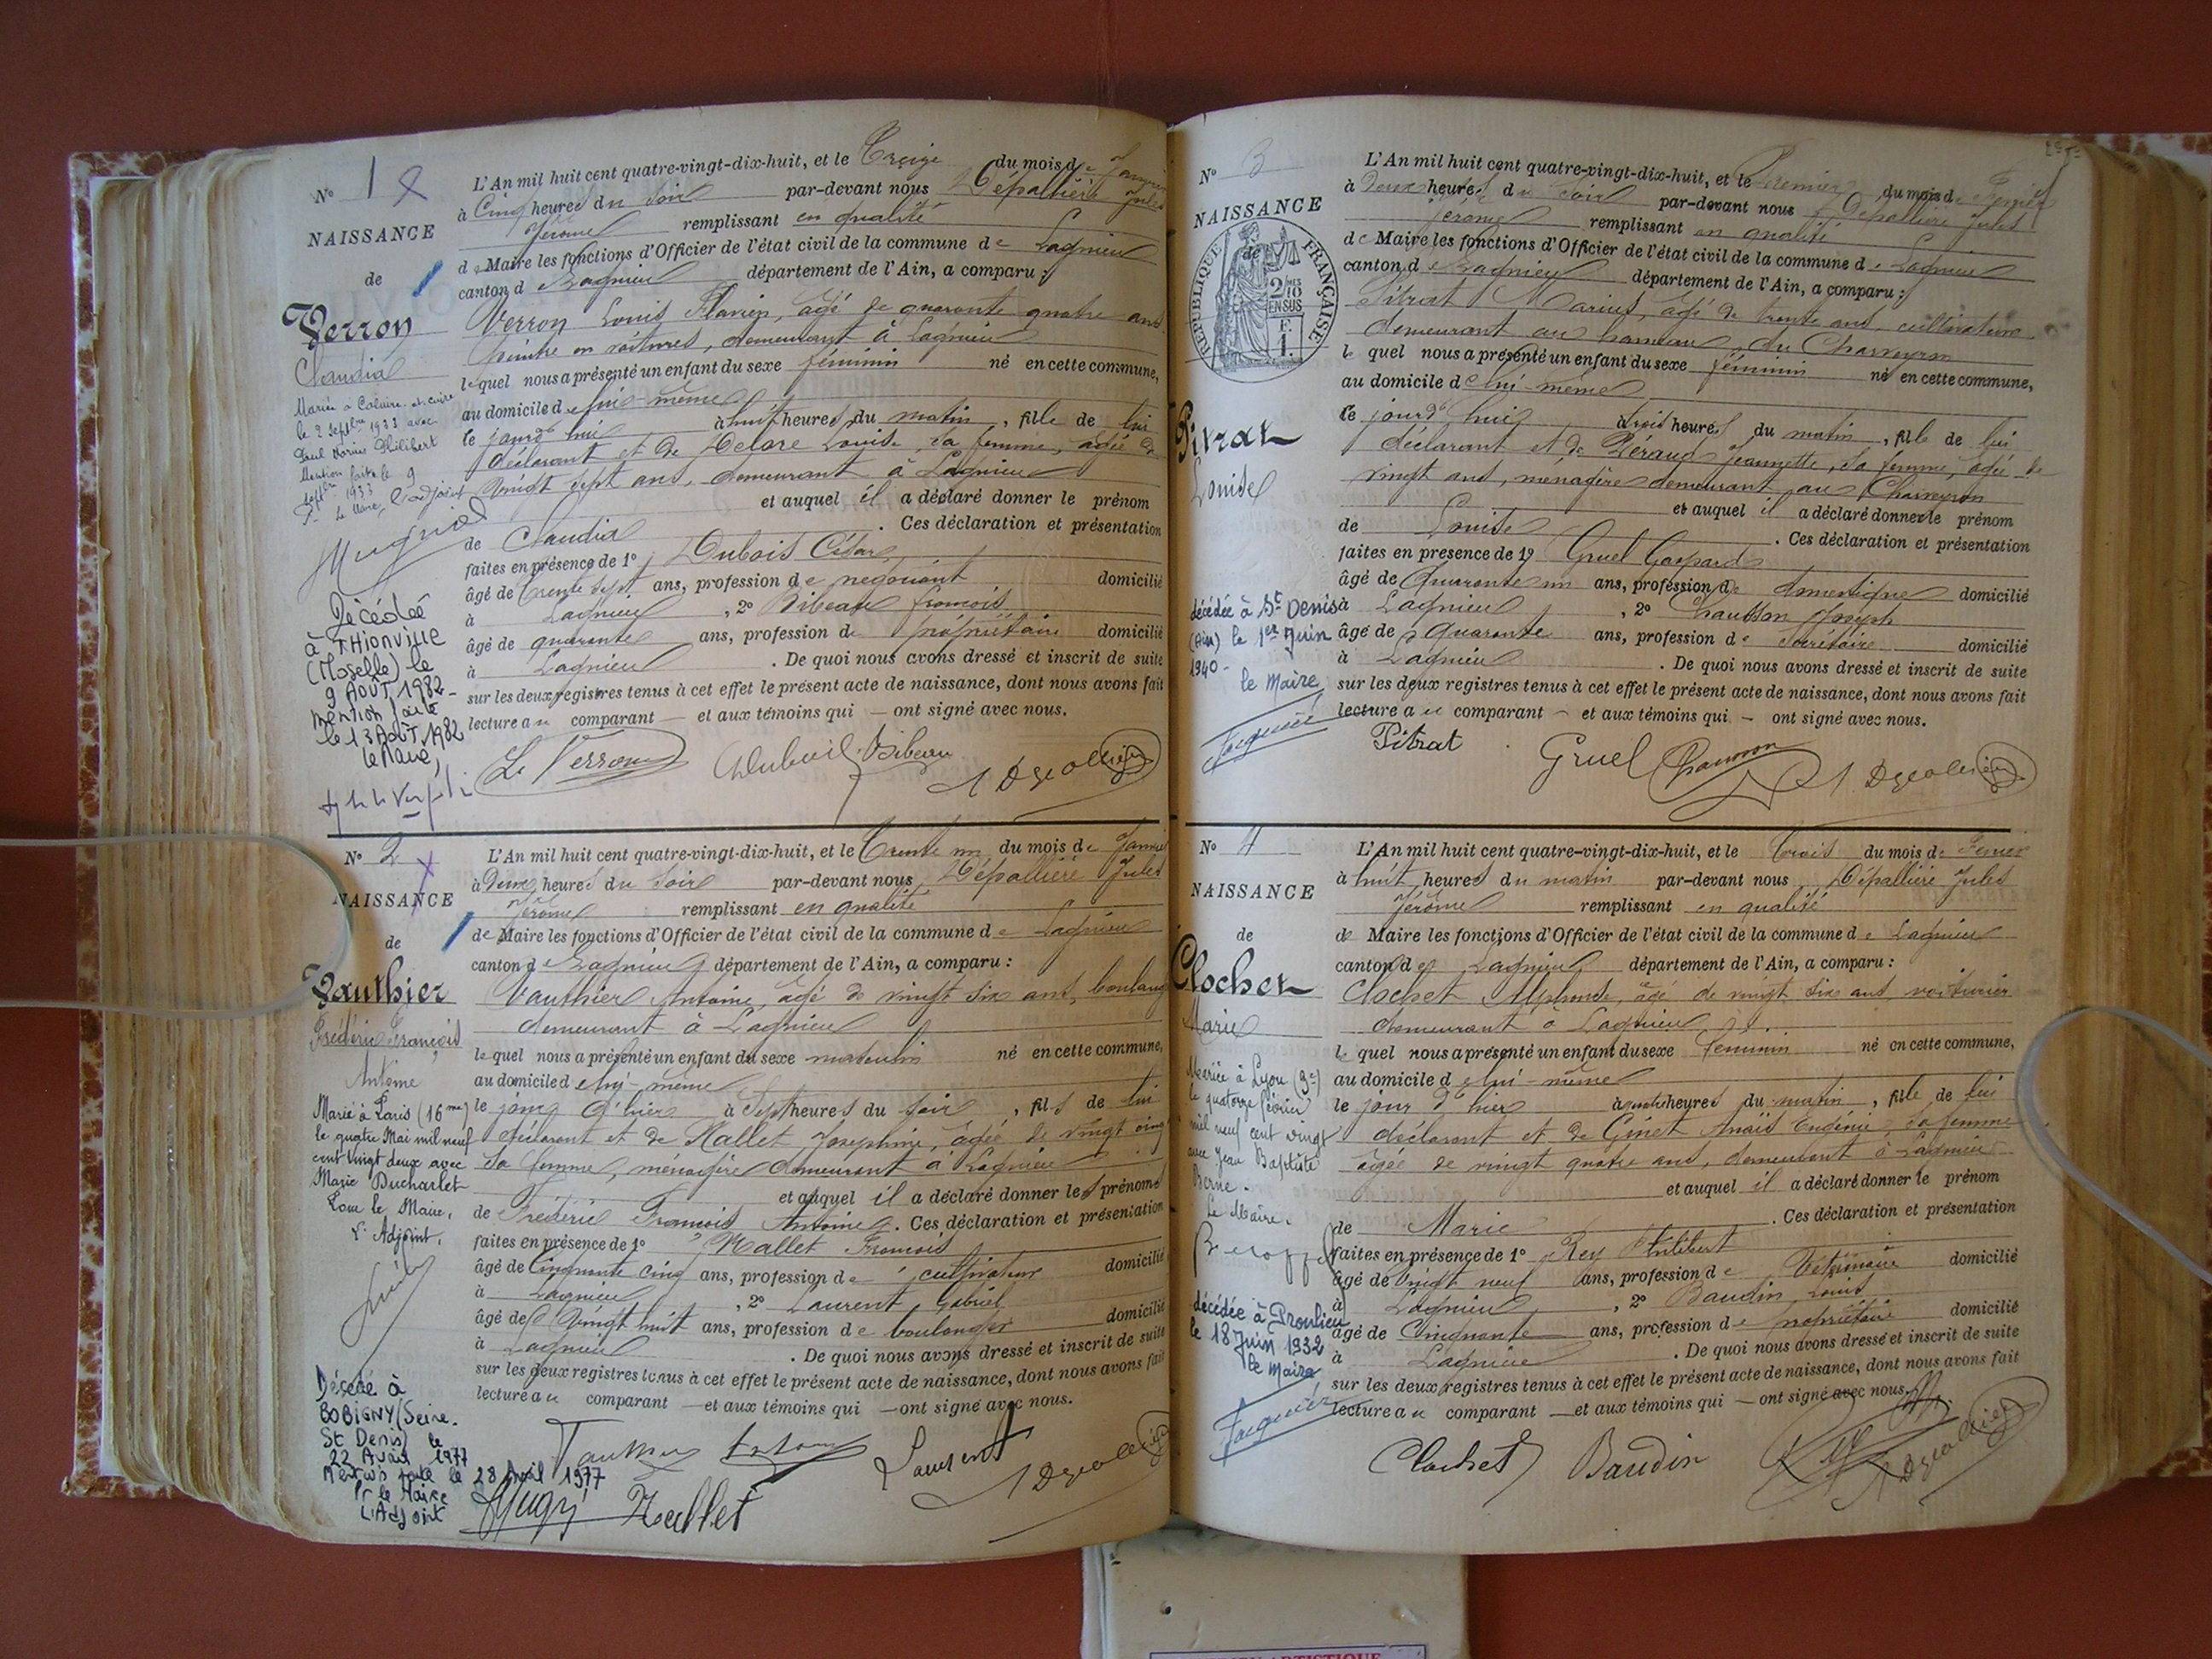 N° 1
NAISSANCE
de
Verron
Claudia
Mariée à Caluire et cuire
le 2 septbre 1933 avec
Paul Marius Philibert
Mention faite le 9
septbre 1933
Le Maire, L'adjoint
Décédée
à THIONVILLE
(Moselle) le
9 AOÛT 1982-
mention faite
le 13 AOÛT 1982
le Maire,
L'An mil huit cent quatre-vingt-dix-huit, et le Treize du mois de Janvier
à Cinq heures du soir par-devant nous Dépallière Jules
Jérôme remplissant en qualité
de Maire les fonctions d'Officier de l'état civil de la commune de Lagnieu
canton de Lagnieu département de l'Ain, a comparu :
Verron Louis Flavien, âgé de quarante quatre ans
peintre en voitures, demeurant à Lagnieu
lequel nous a présenté un enfant du sexe féminin né en cette commune,
au domicile de lui-même
le jourd'hui à huit heures du matin, fille de lui
déclarant et de Delore Louise, sa femme, âgée de
vingt sept ans, demeurant à Lagnieu
et auquel il a déclaré donner le prénom
de Claudia . Ces déclaration et présentation
faites en présence de 1° Dubois César,
âgé de trente sept ans, profession de négociant domicilié
à Lagnieu, 2° Bibeau françois
âgé de quarante ans, profession de propriétaire domicilié
à Lagnieu . De quoi nous avons dressé et inscrit de suite
sur les deux registres tenus à cet effet le présent acte de naissance, dont nous avons fait
lecture au comparant — et aux témoins qui — ont signé avec nous.
L. Verron Bibeau
N° 2
NAISSANCE
de
Vauthier
Frédéric François
Antoine
Marié à Paris (16me)
le quatre Mai mil neuf
cent vingt deux avec
Marie Ducharlet
Pour le Maire,
L'Adjoint,
Décédé à
BOBIGNY (Seine-
St Denis) le
22 Avril 1977
Mention faite le 28 Avril 1977
Pr le Maire
L'Adjoint
L'An mil huit cent quatre-vingt-dix-huit, et le Trente un du mois de Janvier
à Deux heures du soir par-devant nous Dépallière Jules
Jérôme remplissant en qualité
de Maire les fonctions d'Officier de l'état civil de la commune de Lagnieu
canton de Lagnieu département de l'Ain, a comparu :
Vauthier Antoine, âgé de vingt six ans, boulang
demeurant à Lagnieu
lequel nous a présenté un enfant du sexe masculin né en cette commune,
au domicile de lui-même
le jour d'hier à Sept heures du soir, fils de lui
déclarant et de Hallet Joséphine, âgée de vingt cinq
sa femme, ménagère demeurant à Lagnieu
et auquel il a déclaré donner les prénoms
de Frédéric François Antoine . Ces déclaration et présentation
faites en présence de 1° Hallet François
âgé de Cinquante cinq ans, profession de cultivateur domicilié
à Lagnieu, 2° Laurent Gabriel
âgé de Vingt huit ans, profession de boulanger domicilié
à Lagnieu . De quoi nous avons dressé et inscrit de suite
sur les deux registres tenus à cet effet le présent acte de naissance, dont nous avons fait
lecture au comparant — et aux témoins qui — ont signé avec nous.
Laurent
Hallet
N° 3
NAISSANCE
de
RÉPUBLIQUE FRANÇAISE
2/10
EN SUS
F.
1.
Pitrat
Louise
décédée à St Denis
(Ain) le 1er Juin
1940-
le Maire
L'An mil huit cent quatre-vingt-dix-huit, et le Premier du mois de Février
à Deux heures du soir par-devant nous Dépallière Jules
Jérôme remplissant en qualité
de Maire les fonctions d'Officier de l'état civil de la commune de Lagnieu
canton de Lagnieu département de l'Ain, a comparu :
Pitrat Marius, âgé de trente ans, cultivateur
demeurant au hameau du Charveyron
lequel nous a présenté un enfant du sexe féminin né en cette commune,
au domicile de lui-même
le jourd'hui à trois heures du matin, fille de lui
déclarant et de Péraud Jeannette, sa femme, âgée de
vingt ans, ménagère demeurant au Charveyron
et auquel il a déclaré donner le prénom
de Louise . Ces déclaration et présentation
faites en présence de 1° Gruel Gaspard
âgé de Quarante un ans, profession de domestique domicilié
à Lagnieu, 2° Chausson Joseph
âgé de Quarante ans, profession de secrétaire domicilié
à Lagnieu . De quoi nous avons dressé et inscrit de suite
sur les deux registres tenus à cet effet le présent acte de naissance, dont nous avons fait
lecture au comparant — et aux témoins qui — ont signé avec nous.
Pitrat Gruel Chausson
N° 4
NAISSANCE
de
Clochet
Marie
Mariée à Lyon (3e)
le quatorze février
mil neuf cent vingt
avec Jean Baptiste
Berne.
Le Maire.
décédée à Proulieu
le 18 Juin 1932
le Maire
L'An mil huit cent quatre-vingt-dix-huit, et le Trois du mois de Février
à huit heures du matin par-devant nous Dépallière Jules
Jérôme remplissant en qualité
de Maire les fonctions d'Officier de l'état civil de la commune de Lagnieu
canton de Lagnieu département de l'Ain, a comparu :
Clochet Alphonse, âgé de vingt six ans voiturier
demeurant à Lagnieu
lequel nous a présenté un enfant du sexe féminin né en cette commune,
au domicile de lui-même
le jour d'hier à quatre heures du matin, fille de lui
déclarant et de Ginet Anaïs Eugénie, sa femme
âgée de vingt quatre ans, demeurant à Lagnieu
et auquel il a déclaré donner le prénom
de Marie . Ces déclaration et présentation
faites en présence de 1° Rey Philibert
âgé de Vingt neuf ans, profession de Vétérinaire domicilié
à Lagnieu, 2° Baudin Louis
âgé de Cinquante ans, profession de propriétaire domicilié
à Lagnieu . De quoi nous avons dressé et inscrit de suite
sur les deux registres tenus à cet effet le présent acte de naissance, dont nous avons fait
lecture au comparant — et aux témoins qui — ont signé avec nous.
Clochet Baudin